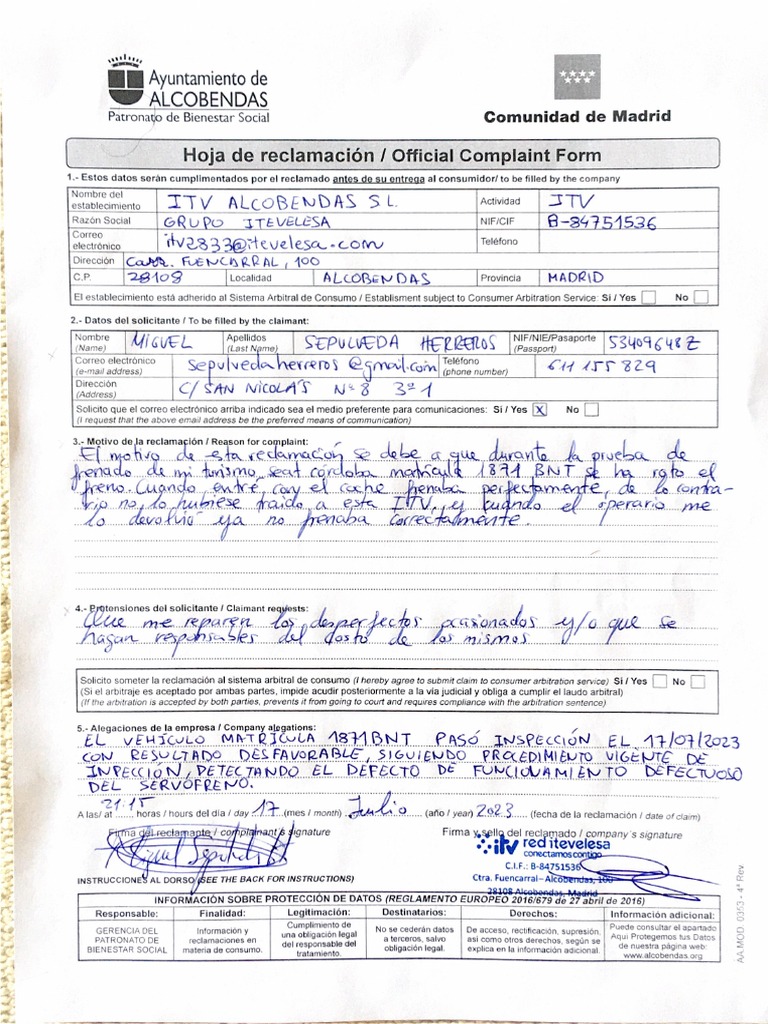 Ayuntamiento de
ALCOBENDAS
Patronato de Bienestar Social
Comunidad de Madrid
Hoja de reclamación / Official Complaint Form
1.- Estos datos serán cumplimentados por el reclamado antes de su entrega al consumidor/ to be filled by the company
Nombre del establecimiento ITV ALCOBENDAS S L. Actividad ITV
Razón Social GRUPO ITEVELESA NIF/CIF B-84751536
Correo electrónico itv2833@itevelesa.com Teléfono
Dirección Carr. FUENCARRAL, 100
C.P. 28108 Localidad ALCOBENDAS Provincia MADRID
El establecimiento está adherido al Sistema Arbitral de Consumo / Establisment subject to Consumer Arbitration Service: Si / Yes No
2.- Datos del solicitante / To be filled by the claimant:
Nombre (Name) MIGUEL Apellidos (Last Name) SEPULVEDA HERREROS NIF/NIE/Pasaporte (Passport) 53409648Z
Correo electrónico (e-mail address) sepulvedaherreros@gmail.com Teléfono (phone number) 611 155 829
Dirección (Address) C/ SAN NICOLÁS Nº 8 3º 1
Solicito que el correo electrónico arriba indicado sea el medio preferente para comunicaciones: Si / Yes X No
(I request that the above email address be the preferred means of communication)
3.- Motivo de la reclamación / Reason for complaint:
El motivo de esta reclamación se debe a que durante la prueba de
frenado de mi turismo, seat córdoba matrícula 1871 BNT se ha roto el
freno. Cuando entré con el coche frenaba perfectamente, de lo contra-
rio no lo hubiese traido a esta ITV, y cuando el operario me
lo devolvió ya no frenaba correctamente.
4.- Pretensiones del solicitante / Claimant requests:
Que me reparen los desperfectos ocasionados y/o que se
hagan responsables del costo de los mismos
Solicito someter la reclamación al sistema arbitral de consumo (I hereby agree to submit claim to consumer arbitration service) Si / Yes No
(Si el arbitraje es aceptado por ambas partes, impide acudir posteriormente a la vía judicial y obliga a cumplir el laudo arbitral)
(If the arbitration is accepted by both parties, prevents it from going to court and requires compliance with the arbitration sentence)
5.- Alegaciones de la empresa / Company alegations:
EL VEHÍCULO MATRÍCULA 1871BNT PASÓ INSPECCIÓN EL 17/07/2023
CON RESULTADO DESFAVORABLE, SIGUIENDO PROCEDIMIENTO VIGENTE DE
INPECCION, DETECTANDO EL DEFECTO DE FUNCIONAMIENTO DEFECTUOSO
DEL SERVOFRENO.
A las/ at 21:15 horas / hours del día / day 17 (mes / month) Julio (año / year) 2023 (fecha de la reclamación / date of claim)
Firma del reclamante / complainant's signature
Firma y sello del reclamado / company's signature
Miguel Sepulveda
itv red itevelesa
conectamos contigo
C.I.F.: B-84751536
Ctra. Fuencarral - Alcobendas, 100
28108 Alcobendas, Madrid
INSTRUCCIONES AL DORSO (SEE THE BACK FOR INSTRUCTIONS)
INFORMACIÓN SOBRE PROTECCIÓN DE DATOS (REGLAMENTO EUROPEO 2016/679 de 27 abril de 2016)
Responsable: Finalidad: Legitimación: Destinatarios: Derechos: Información adicional:
GERENCIA DEL PATRONATO DE BIENESTAR SOCIAL
Información y reclamaciones en materia de consumo.
Cumplimiento de una obligación legal del responsable del tratamiento.
No se cederán datos a terceros, salvo obligación legal.
De acceso, rectificación, supresión, así como otros derechos, según se explica en la información adicional.
Puede consultar el apartado Aquí Protegemos tus Datos de nuestra página web: www.alcobendas.org
AA.MOD. 0353 - 4ª Rev.